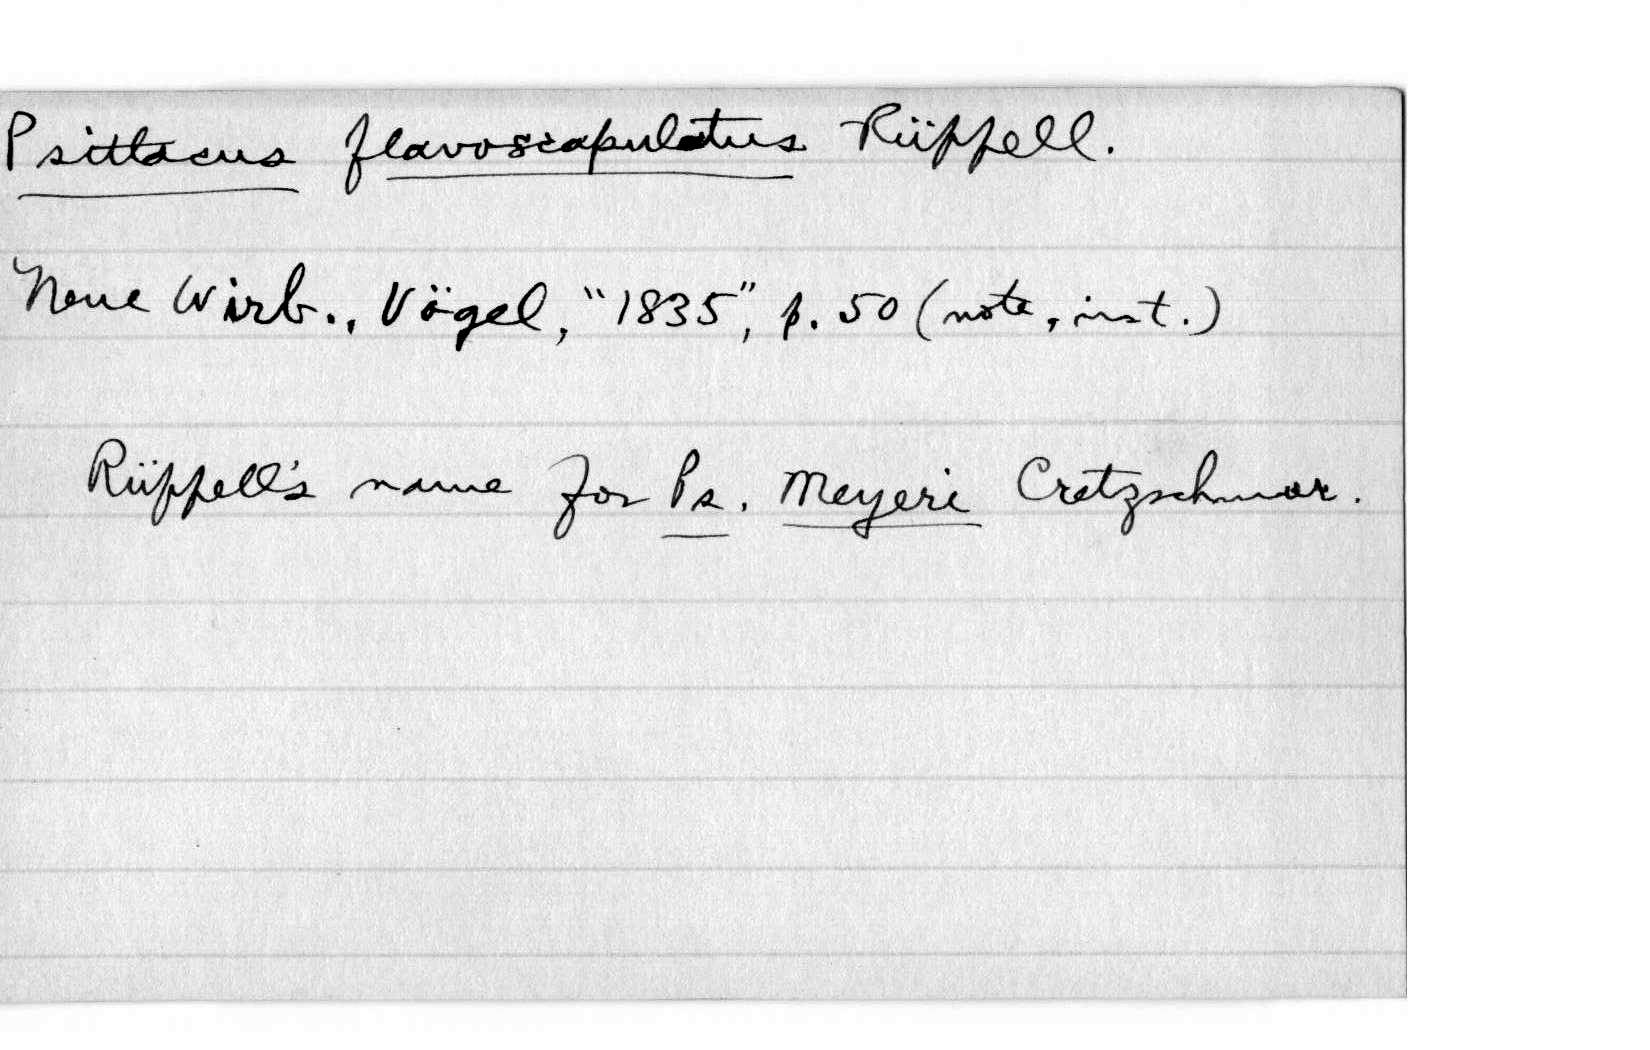 Psittacus flavoscapulatus Rüppell.
Neue Wirb., Vögel, "1835", p. 50 (note, inst.)
Rüppell's name for Ps. Meyeri Cretzschmar.